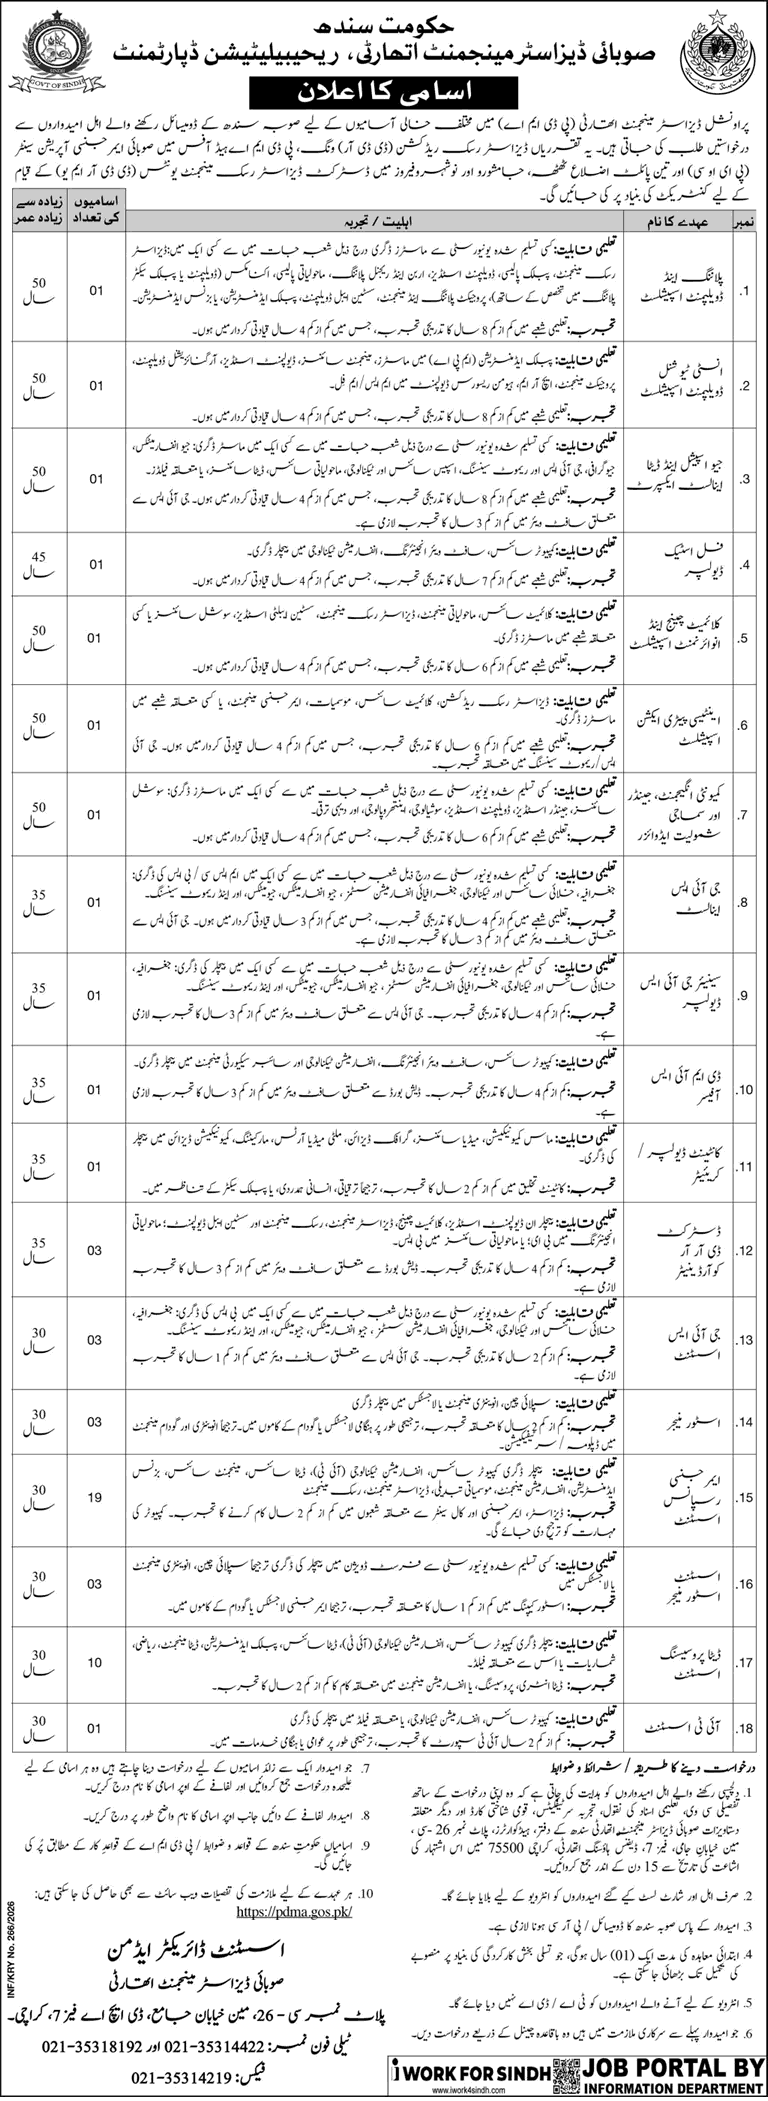 حکومت سندھ
صوبائی ڈیزاسٹر مینجمنٹ اتھارٹی، ریحیبیلیٹیشن ڈپارٹمنٹ
GOVT OF SINDH
اسامی کا اعلان
پراونشل ڈیزاسٹر مینجمنٹ اتھارٹی (پی ڈی ایم اے) میں مختلف خالی آسامیوں کے لیے صوبہ سندھ کے ڈومیسائل رکھنے والے اہل امیدواروں سے
درخواستیں طلب کی جاتی ہیں۔ یہ تقرریاں ڈیزاسٹر رسک ریڈکشن (ڈی ڈی آر) ونگ، پی ڈی ایم اے ہیڈ آفس میں صوبائی ایمرجنسی آپریشن سینٹر
(پی ای او سی) اور تین پائلٹ اضلاع ٹھٹھہ، جامشورو اور نوشہروفیروز میں ڈسٹرکٹ ڈیزاسٹر رسک مینجمنٹ یونٹس (ڈی ڈی آر ایم یو) کے قیام
کے لیے کنٹریکٹ کی بنیاد پر کی جائیں گی۔
نمبر عہدے کا نام اہلیت / تجربہ اسامیوں کی تعداد زیادہ سے زیادہ عمر
1. پلاننگ اینڈ ڈویلپمنٹ اسپیشلسٹ
تعلیمی قابلیت: کسی تسلیم شدہ یونیورسٹی سے ماسٹرز ڈگری درج ذیل شعبہ جات میں سے کسی ایک میں: ڈیزاسٹر
رسک مینجمنٹ، پبلک پالیسی، ڈویلپمنٹ اسٹڈیز، اربن اینڈ ریجنل پلاننگ، ماحولیاتی پالیسی، اکنامکس (ڈویلپمنٹ یا پبلک سیکٹر
پلاننگ میں تخصص کے ساتھ)، پروجیکٹ پلاننگ اینڈ مینجمنٹ، سسٹین ایبل ڈویلپمنٹ، پبلک ایڈمنسٹریشن، یا بزنس ایڈمنسٹریشن۔
تجربہ: تعلیمی شعبے میں کم از کم 8 سال کا تدریجی تجربہ، جس میں کم از کم 4 سال قیادتی کردار میں ہوں۔
01
50 سال
2. انسٹی ٹیوشنل ڈویلپمنٹ اسپیشلسٹ
تعلیمی قابلیت: پبلک ایڈمنسٹریشن (ایم پی اے) میں ماسٹرز، مینجمنٹ سائنسز، ڈیولپمنٹ اسٹڈیز، آرگنائزیشنل ڈویلپمنٹ،
پروجیکٹ مینجمنٹ، ایچ آر ایم، ہیومن ریسورس ڈیولپمنٹ میں ایم ایس/ ایم فل۔
تجربہ: تعلیمی شعبے میں کم از کم 8 سال کا تدریجی تجربہ، جس میں کم از کم 4 سال قیادتی کردار میں ہوں۔
01
50 سال
3. جیو اسپیشل اینڈ ڈیٹا اینالسٹ ایکسپرٹ
تعلیمی قابلیت: کسی تسلیم شدہ یونیورسٹی سے درج ذیل شعبہ جات میں سے کسی ایک میں ماسٹر ڈگری: جیو انفارمیٹکس،
جیوگرافی، جی آئی ایس اور ریموٹ سینسنگ، اسپیس سائنس اور ٹیکنالوجی، ماحولیاتی سائنس، ڈیٹا سائنسز، یا متعلقہ فیلڈز۔
تجربہ: تعلیمی شعبے میں کم از کم 8 سال کا تدریجی تجربہ، جس میں کم از کم 4 سال قیادتی کردار میں ہوں۔ جی آئی ایس سے
متعلق سافٹ ویئر میں کم از کم 3 سال کا تجربہ لازمی ہے۔
01
50 سال
4. فل اسٹیک ڈیولپر
تعلیمی قابلیت: کمپیوٹر سائنس، سافٹ ویئر انجینئرنگ، انفارمیشن ٹیکنالوجی میں بیچلر ڈگری۔
تجربہ: تعلیمی شعبے میں کم از کم 7 سال کا تدریجی تجربہ، جس میں کم از کم 4 سال قیادتی کردار میں ہوں۔
01
45 سال
5. کلائمیٹ چینج اینڈ انوائرنمنٹ اسپیشلسٹ
تعلیمی قابلیت: کلائمیٹ سائنس، ماحولیاتی مینجمنٹ، ڈیزاسٹر رسک مینجمنٹ، سسٹین ایبلٹی اسٹڈیز، سوشل سائنسز یا کسی
متعلقہ شعبے میں ماسٹرز ڈگری۔
تجربہ: تعلیمی شعبے میں کم از کم 6 سال کا تدریجی تجربہ، جس میں کم از کم 4 سال قیادتی کردار میں ہوں۔
01
50 سال
6. اینٹیسی پیٹری ایکشن اسپیشلسٹ
تعلیمی قابلیت: ڈیزاسٹر رسک ریڈکشن، کلائمیٹ سائنس، موسمیات، ایمرجنسی مینجمنٹ، یا کسی متعلقہ شعبے میں
ماسٹرز ڈگری۔
تجربہ: تعلیمی شعبے میں کم از کم 6 سال کا تدریجی تجربہ، جس میں کم از کم 4 سال قیادتی کردار میں ہوں۔ جی آئی
ایس/ریموٹ سینسنگ میں متعلقہ تجربہ۔
01
50 سال
7. کمیونٹی انگیجمنٹ، جینڈر اور سماجی شمولیت ایڈوائزر
تعلیمی قابلیت: کسی تسلیم شدہ یونیورسٹی سے درج ذیل شعبہ جات میں سے کسی ایک میں ماسٹرز ڈگری: سوشل
سائنسز، جینڈر اسٹڈیز، ڈویلپمنٹ اسٹڈیز، سوشیالوجی، اینتھروپالوجی، اور دیہی ترقی۔
تجربہ: تعلیمی شعبے میں کم از کم 6 سال کا تدریجی تجربہ، جس میں کم از کم 4 سال قیادتی کردار میں ہوں۔
01
50 سال
8. جی آئی ایس اینالسٹ
تعلیمی قابلیت: کسی تسلیم شدہ یونیورسٹی سے درج ذیل شعبہ جات میں سے کسی ایک میں ایم ایس سی / بی ایس کی ڈگری:
جغرافیہ، خلائی سائنس اور ٹیکنالوجی، جغرافیائی انفارمیشن سسٹمز، جیو انفارمیٹکس، جیومیٹکس، اور اینڈ ریموٹ سینسنگ۔
تجربہ: تعلیمی شعبے میں کم از کم 4 سال کا تدریجی تجربہ، جس میں کم از کم 3 سال قیادتی کردار میں ہوں۔ جی آئی ایس سے
متعلق سافٹ ویئر میں کم از کم 3 سال کا تجربہ لازمی ہے۔
01
35 سال
9. سینیئر جی آئی ایس ڈیولپر
تعلیمی قابلیت: کسی تسلیم شدہ یونیورسٹی سے درج ذیل شعبہ جات میں سے کسی ایک میں بیچلر کی ڈگری: جغرافیہ،
خلائی سائنس اور ٹیکنالوجی، جغرافیائی انفارمیشن سسٹمز، جیو انفارمیٹکس، جیومیٹکس، اور اینڈ ریموٹ سینسنگ۔
تجربہ: کم از کم 4 سال کا تدریجی تجربہ۔ جی آئی ایس سے متعلق سافٹ ویئر میں کم از کم 3 سال کا تجربہ لازمی
ہے۔
01
35 سال
10. ڈی ایم آئی ایس آفیسر
تعلیمی قابلیت: کمپیوٹر سائنس، سافٹ ویئر انجینئرنگ، انفارمیشن ٹیکنالوجی اور سائبر سیکیورٹی مینجمنٹ میں بیچلر ڈگری۔
تجربہ: کم از کم 4 سال کا تدریجی تجربہ۔ ڈیش بورڈ سے متعلق سافٹ ویئر میں کم از کم 3 سال کا تجربہ لازمی
ہے۔
01
35 سال
11. کانٹینٹ ڈیولپر / کریئیٹر
تعلیمی قابلیت: ماس کمیونیکیشن، میڈیا سائنسز، گرافک ڈیزائن، ملٹی میڈیا آرٹس، مارکیٹنگ، کمیونیکیشن ڈیزائن میں بیچلر
کی ڈگری۔
تجربہ: کانٹینٹ تخلیق میں کم از کم 2 سال کا تجربہ، ترجیحاً ترقیاتی، انسانی ہمدردی، یا پبلک سیکٹر کے تناظر میں۔
01
35 سال
12. ڈسٹرکٹ ڈی آر آر کوآرڈینیٹر
تعلیمی قابلیت: بیچلر ان ڈیولپمنٹ اسٹڈیز، کلائمیٹ چینج، ڈیزاسٹر مینجمنٹ، رسک مینجمنٹ اور سسٹین ایبل ڈیولپمنٹ؛ ماحولیاتی
انجینئرنگ میں بی ای؛ یا ماحولیاتی سائنسز میں بی ایس۔
تجربہ: کم از کم 4 سال کا تدریجی تجربہ۔ ڈیش بورڈ سے متعلق سافٹ ویئر میں کم از کم 3 سال کا تجربہ
لازمی ہے۔
03
35 سال
13. جی آئی ایس اسسٹنٹ
تعلیمی قابلیت: کسی تسلیم شدہ یونیورسٹی سے درج ذیل شعبہ جات میں سے کسی ایک میں بی ایس کی ڈگری: جغرافیہ،
خلائی سائنس اور ٹیکنالوجی، جغرافیائی انفارمیشن سسٹمز، جیو انفارمیٹکس، جیومیٹکس، اور اینڈ ریموٹ سینسنگ۔
تجربہ: کم از کم 2 سال کا تدریجی تجربہ۔ جی آئی ایس سے متعلق سافٹ ویئر میں کم از کم 1 سال کا تجربہ
لازمی ہے۔
03
30 سال
14. اسٹور منیجر
تعلیمی قابلیت: سپلائی چین، انوینٹری مینجمنٹ یا لاجسٹکس میں بیچلر ڈگری
تجربہ: کم از کم 2 سال کا متعلقہ تجربہ، ترجیحی طور پر ہنگامی لاجسٹکس یا گودام کے کاموں میں۔ ترجیحاً انوینٹری اور گودام مینجمنٹ
میں ڈپلومہ / سرٹیفکیشن۔
03
30 سال
15. ایمرجنسی رسپانس اسسٹنٹ
تعلیمی قابلیت: بیچلر ڈگری کمپیوٹر سائنس، انفارمیشن ٹیکنالوجی (آئی ٹی)، ڈیٹا سائنس، مینجمنٹ سائنس، بزنس
ایڈمنسٹریشن، انفارمیشن مینجمنٹ، موسمیاتی تبدیلی، ڈیزاسٹر مینجمنٹ، رسک مینجمنٹ
تجربہ: ڈیزاسٹر، ایمرجنسی اور کال سینٹر سے متعلقہ شعبوں میں کم از کم 2 سال کام کرنے کا تجربہ۔ کمپیوٹر کی
مہارت کو ترجیح دی جائے گی۔
19
30 سال
16. اسسٹنٹ اسٹور منیجر
تعلیمی قابلیت: کسی تسلیم شدہ یونیورسٹی سے فرسٹ ڈویژن میں بیچلر کی ڈگری ترجیحاً سپلائی چین، انوینٹری مینجمنٹ
یا لاجسٹکس میں
تجربہ: اسٹور کیپنگ میں کم از کم 1 سال کا متعلقہ تجربہ، ترجیحاً ایمرجنسی لاجسٹکس یا گودام کے کاموں میں۔
03
30 سال
17. ڈیٹا پروسیسنگ اسسٹنٹ
تعلیمی قابلیت: بیچلر ڈگری کمپیوٹر سائنس، انفارمیشن ٹیکنالوجی (آئی ٹی)، ڈیٹا سائنس، پبلک ایڈمنسٹریشن، ڈیٹا مینجمنٹ، ریاضی،
شماریات یا اس سے متعلقہ فیلڈ۔
تجربہ: ڈیٹا انٹری، پروسیسنگ، یا انفارمیشن مینجمنٹ میں متعلقہ کام کا کم از کم 2 سال کا تجربہ۔
10
30 سال
18. آئی ٹی اسسٹنٹ
تعلیمی قابلیت: کمپیوٹر سائنس، انفارمیشن ٹیکنالوجی، یا متعلقہ فیلڈ میں بیچلر کی ڈگری
تجربہ: کم از کم 2 سال آئی ٹی سپورٹ کا تجربہ، ترجیحی طور پر عوامی یا ہنگامی خدمات میں۔
01
30 سال
درخواست دینے کا طریقہ / شرائط و ضوابط
1. دلچسپی رکھنے والے اہل امیدواروں کو ہدایت کی جاتی ہے کہ وہ اپنی درخواست کے ساتھ
تفصیلی سی وی، تعلیمی اسناد کی نقول، تجربہ سرٹیفکیٹس، قومی شناختی کارڈ اور دیگر متعلقہ
دستاویزات صوبائی ڈیزاسٹر مینجمنٹ اتھارٹی سندھ کے دفتر، ہیڈکوارٹرز، پلاٹ نمبر 26- سی،
مین خیابان جامی، فیز 7، ڈیفنس ہاؤسنگ اتھارٹی، کراچی 75500 میں اس اشتہار کی
اشاعت کی تاریخ سے 15 دن کے اندر جمع کروائیں۔
2. صرف اہل اور شارٹ لسٹ کیے گئے امیدواروں کو انٹرویو کے لیے بلایا جائے گا۔
3. امیدوار کے پاس صوبہ سندھ کا ڈومیسائل / پی آر سی ہونا لازمی ہے۔
4. ابتدائی معاہدہ کی مدت ایک (01) سال ہوگی، جو تسلی بخش کارکردگی کی بنیاد پر منصوبے
کی تکمیل تک بڑھائی جاسکتی ہے۔
5. انٹرویو کے لیے آنے والے امیدواروں کو ٹی اے / ڈی اے نہیں دیا جائے گا۔
6. جو امیدوار پہلے سے سرکاری ملازمت میں ہیں وہ باقاعدہ چینل کے ذریعے درخواست دیں۔
7. جو امیدوار ایک سے زائد اسامیوں کے لیے درخواست دینا چاہتے ہیں وہ ہر اسامی کے لیے
علیحدہ درخواست جمع کروائیں اور لفافے کے اوپر اسامی کا نام درج کریں۔
8. امیدوار لفافے کے دائیں جانب اوپر اسامی کا نام واضح طور پر درج کریں۔
9. اسامیاں حکومتِ سندھ کے قواعد و ضوابط / پی ڈی ایم اے کے قواعدِ کار کے مطابق پُر کی
جائیں گی۔
10. ہر عہدے کے لیے ملازمت کی تفصیلات ویب سائٹ سے بھی حاصل کی جاسکتی ہیں:
https://pdma.gos.pk/
اسسٹنٹ ڈائریکٹر ایڈمن
صوبائی ڈیزاسٹر مینجمنٹ اتھارٹی
پلاٹ نمبر سی - 26، مین خیابان جامع، ڈی ایچ اے فیز 7، کراچی۔
ٹیلی فون نمبر: 021-35314422 اور 021-35318192
فیکس: 021-35314219
INF/KRY No. 266/2026
i WORK FOR SINDH
www.iwork4sindh.com
JOB PORTAL BY
INFORMATION DEPARTMENT